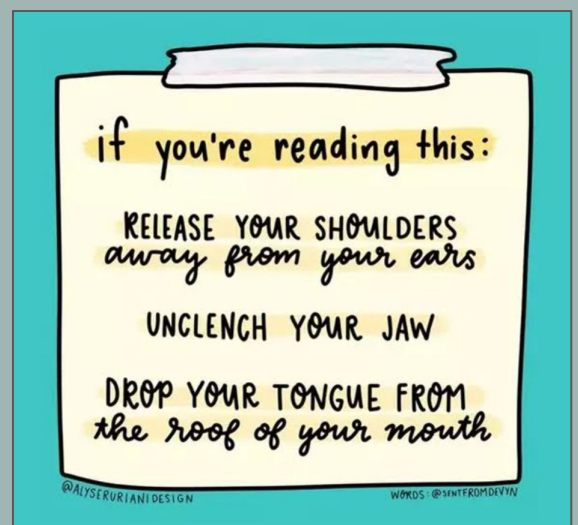 if you're reading this:
RELEASE YOUR SHOULDERS
away from your ears
UNCLENCH YOUR JAW
DROP YOUR TONGUE FROM
the roof of your mouth
@ALYSERURIANIDESIGN
WORDS: @SENTFROMDEVYN